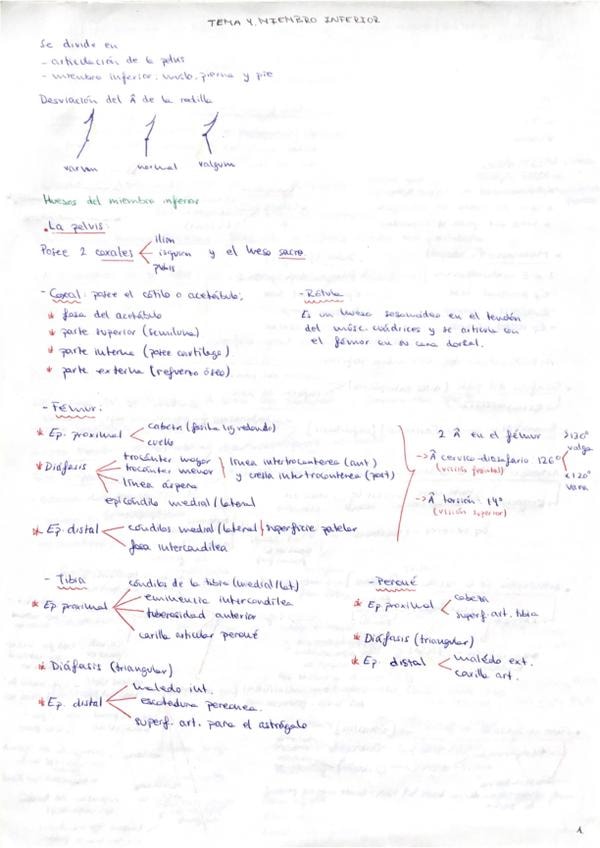 TEMA 4. MIEMBRO INFERIOR
Se divide en
- articulación de la pelvis
- miembro inferior: muslo, pierna y pie
Desviación del Â de la rodilla
varum normal valgum
Huesos del miembro inferior
. La pelvis:
Posee 2 coxales
ilion
isquion
pubis
y el hueso sacro
- Coxal: posee el cótilo o acetábulo;
* fosa del acetábulo
* parte superior (semiluna)
* parte interna (posee cartílago)
* parte externa (refuerzo óseo)
- Rótula
Es un hueso sesamoideo en el tendón
del músc. cuádriceps y se articula con
el fémur en su cara dorsal.
- Fémur:
* Ep. proximal
cabeza (fosita lig redondo)
cuello
* Diáfasis
trocánter mayor
trocánter menor
línea intertrocanterea (ant)
y cresta intertrocanterea (post)
línea áspera
epicóndilo medial/lateral
* Ep. distal
cóndilos medial/lateral
superficie patelar
fosa intercondilea
2 Â en el fémur
-> Â cervico-diasefario 126°
(visión frontal)
>130°
valga
<120°
vara
-> Â torsión: 14°
(visión superior)
- Tibia
* Ep proximal
cóndilos de la tibia (medial/lat)
eminencia intercondilea
tuberosidad anterior
carilla articular peroné
* Diáfasis (triangular)
* Ep. distal
maleolo int.
escotadura peronea.
superf. art. para el astrágalo
- Peroné
* Ep proximal
cabeza
superf. art. tibia
* Diáfasis (triangular)
* Ep. distal
maléolo ext.
carilla art.
1